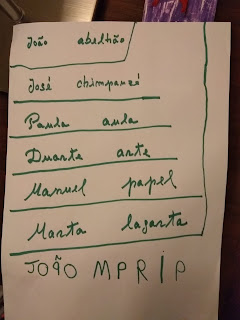 João abelhão
José chimpanzé
Paula aula
Duarte arte
Manuel papel
Marta lagarta
JOÃO M P R I P